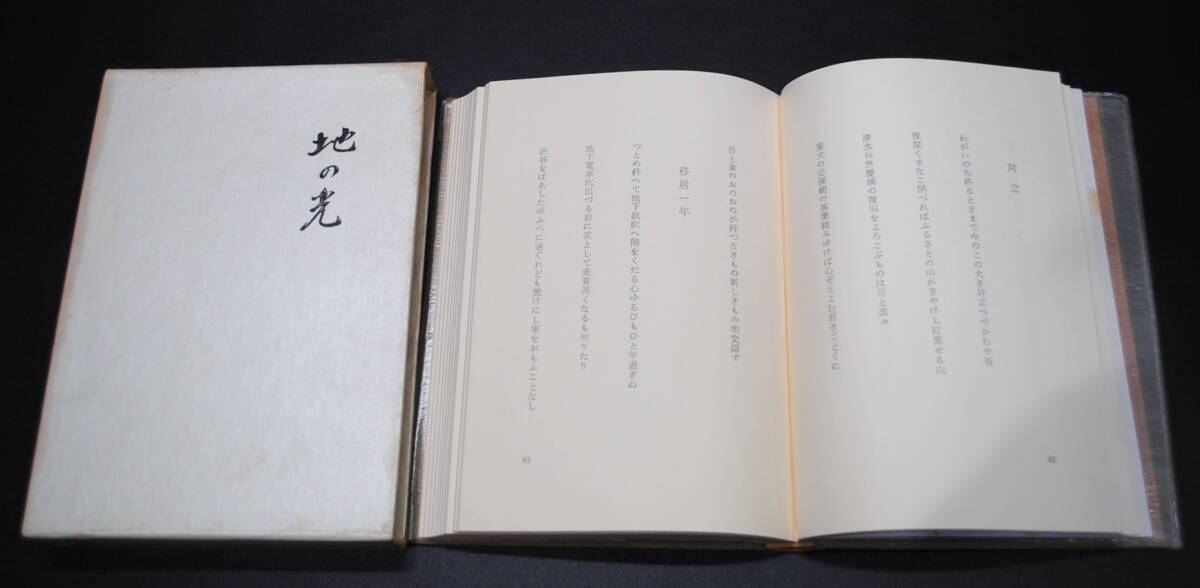 地の光
対立
わがいのち終るときまで今のこの大き対立つづかむや否
夜深くまなこ閉づればふるさとの山がさやけし紅葉せる山
清水谷弁慶橋の復旧をよろこぶものは吾と誰々
東大の公孫樹の落葉踏みゆけば心ぞとよむ若きごとくに
62
吾と妻のおのおのが持つ古きもの新しきもの相交錯す
移居一年
つとめ終へて地下鉄駅へ階をくだる心ゆるびもひと年過ぎぬ
地下電車坑出づる前に常として走音高くなるも知りたり
渋谷をばあしたゆふべに過ぐれども焼けにし家をおもふことなし
63